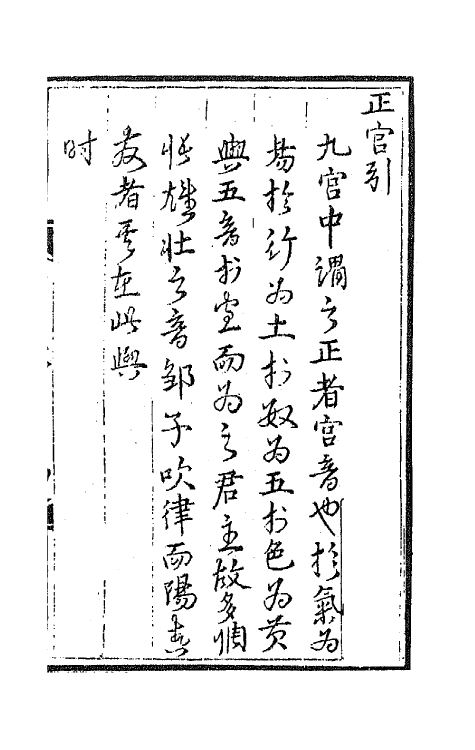 正宫引
九宫中謂之正者宫音也於氣為
陽於行為土於數為五於色為黄
與五音於宫而為之君主故多惆
悵雄壯之音鄒子吹律而陽春
發者其在此與
时